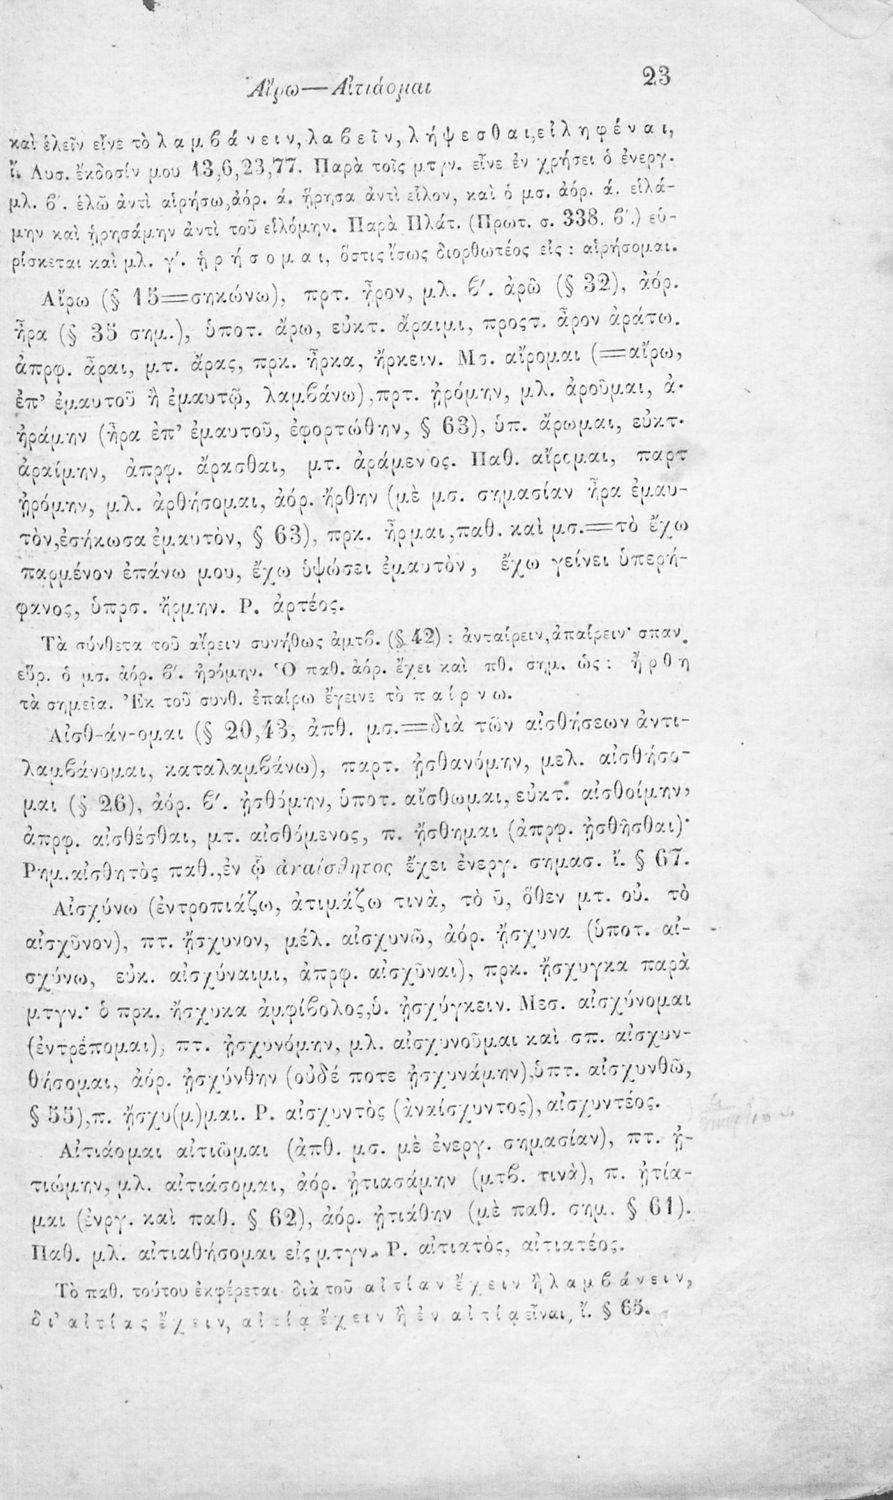 Αἴρω—Αἰτιάομαι 23
καὶ ἑλεῖν εἶνε τὸ λαμβάνειν, λαβεῖν, λήψεσθαι, εἰληφέναι,
ἴ. Λυσ. ἔκδοσίν μου 13,6,23,77. Παρὰ τοῖς μτγν. εἶνε ἐν χρήσει ὁ ἐνεργ.
μλ. β΄. ἑλῶ ἀντὶ αἱρήσω, ἀόρ. ά. ᾕρησα ἀντὶ εἷλον, καὶ ὁ μσ. ἀόρ. ά. εἱλά-
μην καὶ ᾑρησάμην ἀντὶ τοῦ εἱλόμην. Παρὰ Πλάτ. (Πρωτ. σ. 338. β΄.) εὑ-
ρίσκεται καὶ μλ. γ΄. ᾑρήσομαι, ὅστις ἴσως διορθωτέος εἰς : αἱρήσομαι.
Αἴρω (§ 15=σηκώνω), πρτ. ᾖρον, μλ. β΄. ἀρῶ (§ 32), ἀόρ.
ἦρα (§ 35 σημ.), ὑποτ. ἄρω, εὐκτ. ἄραιμι, προςτ. ἆρον ἀράτω.
ἀπρφ. ἆραι, μτ. ἄρας, πρκ. ἦρκα, ἤρκειν. Μσ. αἴρομαι (=αἴρω,
ἐπ’ ἐμαυτοῦ ἢ ἐμαυτῷ, λαμβάνω), πρτ. ᾐρόμην, μλ. ἀροῦμαι, ἀ.
ἠράμην (ἦρα ἐπ’ ἐμαυτοῦ, ἐφορτώθην, § 63), ὑπ. ἄρωμαι, εὐκτ.
ἀραίμην, ἀπρφ. ἄρασθαι, μτ. ἀράμενος. Παθ. αἴρομαι, παρτ
ᾐρόμην, μλ. ἀρθήσομαι, ἀόρ. ἤρθην (μὲ μσ. σημασίαν ἦρα ἐμαυ-
τὸν, ἐσήκωσα ἐμαυτὸν, § 63), πρκ. ἦρμαι, παθ. καὶ μσ.=τὸ ἔχω
παρμένον ἐπάνω μου, ἔχω ὑψώσει ἐμαυτὸν, ἔχω γείνει ὑπερή-
φανος, ὑπρσ. ἤρμην. Ρ. ἀρτέος.
Τὰ σύνθετα τοῦ αἴρειν συνήθως ἀμτβ. (§ 42) : ἀνταίρειν, ἀπαίρειν· σπαν.
εὕρ. ὁ μσ. ἀόρ. β΄. ἠρόμην. Ὁ παθ. ἀόρ. ἔχει καὶ πθ. σημ. ὡς : ἤρθη
τὰ σημεῖα. Ἐκ τοῦ συνθ. ἐπαίρω ἔγεινε τὸ παίρνω.
Αἰσθ-άν-ομαι (§ 20,43, ἀπθ. μσ.=διὰ τῶν αἰσθήσεων ἀντι-
λαμβάνομαι, καταλαμβάνω), παρτ. ᾐσθανόμην, μελ. αἰσθήσο-
μαι (§ 26), ἀόρ. β΄. ᾐσθόμην, ὑποτ. αἴσθωμαι, εὐκτ. αἰσθοίμην,
ἀπρφ. αἰσθέσθαι, μτ. αἰσθόμενος, π. ᾔσθημαι (ἀπρφ. ᾐσθῆσθαι)·
Ρημ. αἰσθητὸς παθ., ἐν ᾧ ἀναίσθητος ἔχει ἐνεργ. σημασ. ἴ. § 67.
Αἰσχύνω (ἐντροπιάζω, ἀτιμάζω τινὰ, τὸ ῡ, ὅθεν μτ. οὐ. τὸ
αἰσχῦνον), πτ. ᾔσχυνον, μέλ. αἰσχυνῶ, ἀόρ. ᾔσχυνα (ὑποτ. αἰ-
σχύνω, εὐκ. αἰσχύναιμι, ἀπρφ. αἰσχῦναι), πρκ. ᾔσχυγκα παρὰ
μτγν.· ὁ πρκ. ᾔσχυκα ἀμφίβολος, ὑ. ᾐσχύγκειν. Μεσ. αἰσχύνομαι
(ἐντρέπομαι), πτ. ᾐσχυνόμην, μλ. αἰσχυνοῦμαι καὶ σπ. αἰσχυν-
θήσομαι, ἀόρ. ᾐσχύνθην (οὐδέ ποτε ᾐσχυνάμην), ὑπτ. αἰσχυνθῶ,
§ 55), π. ᾔσχυ(μ)μαι. Ρ. αἰσχυντὸς (ἀναίσχυντος), αἰσχυντέος.
Αἰτιάομαι αἰτιῶμαι (ἀπθ. μσ. μὲ ἐνεργ. σημασίαν), πτ. ᾐ-
τιώμην, μλ. αἰτιάσομαι, ἀόρ. ᾐτιασάμην (μτβ. τινὰ), π. ᾐτία-
μαι (ἐνργ. καὶ παθ. § 62), ἀόρ. ᾐτιάθην (μὲ παθ. σημ. § 61).
Παθ. μλ. αἰτιαθήσομαι εἰς μτγν. Ρ. αἰτιατὸς, αἰτιατέος.
Τὸ παθ. τούτου ἐκφέρεται διὰ τοῦ αἰτίαν ἔχειν ἢ λαμβάνειν,
δι’ αἰτίας ἔχειν, αἰτίᾳ ἔχειν ἢ ἐν αἰτίᾳ εἶναι, ἴ. § 65.